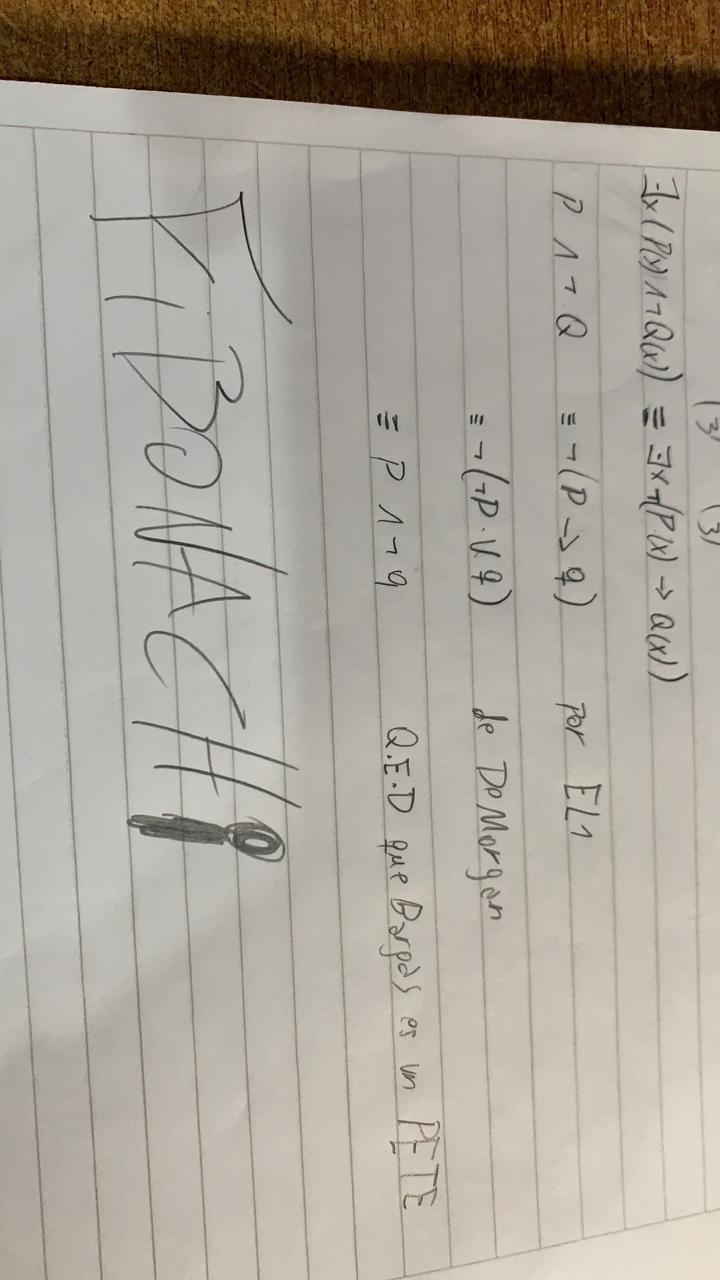 (3) (3)
∃x(P(x) ∧ ¬Q(x)) ≡ ∃x¬(P(x) → Q(x))
P ∧ ¬ Q ≡ ¬(P → q) por EL1
≡ ¬(¬P ∨ q) de DeMorgan
≡ P ∧ ¬ q Q.E.D que Bargas es un PETE
FiBONACHi